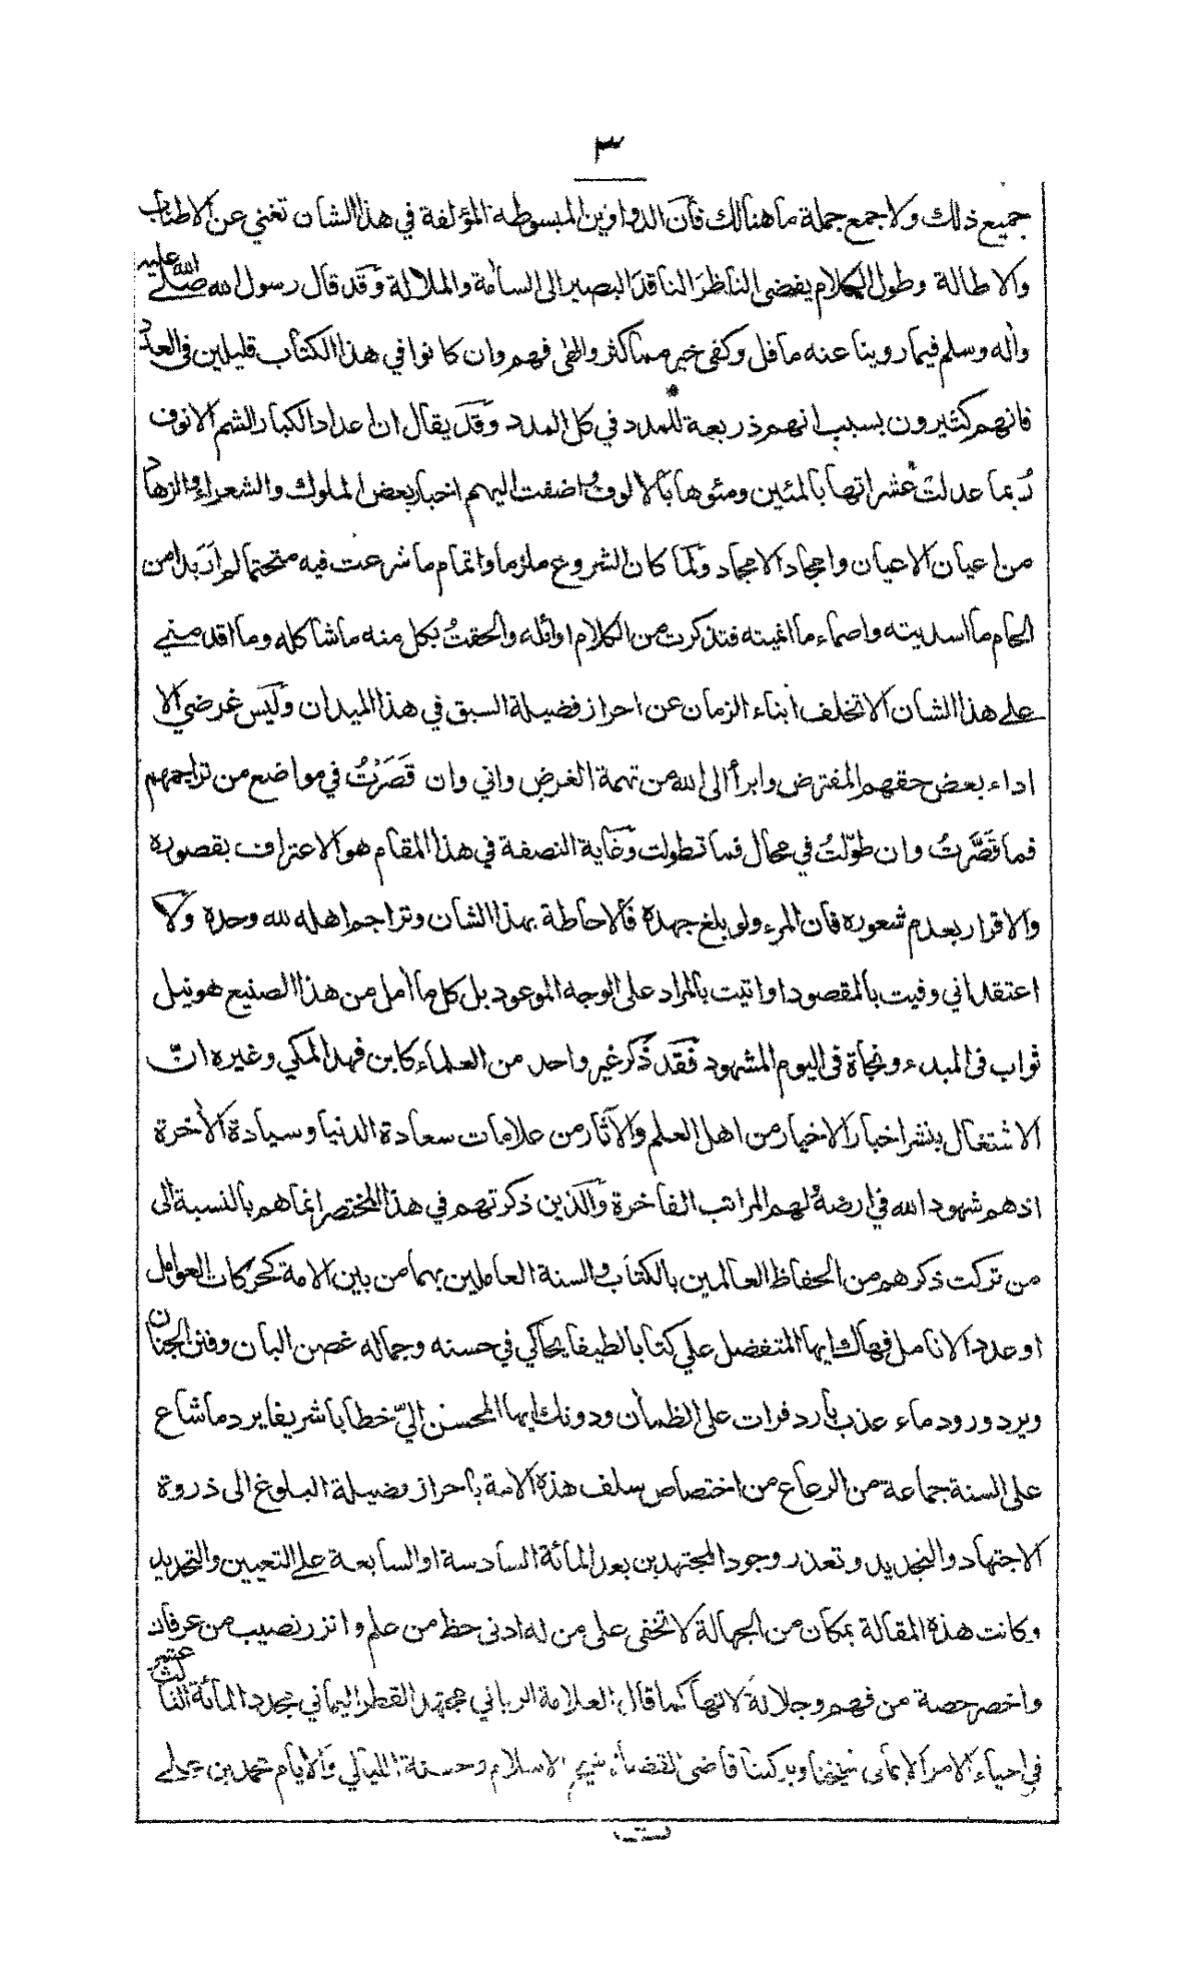 ٣
جميع ذلك ولا جمع جملة ما هنالك فان الدواوين المبسوطة المؤلفة في هذا الشان تغني عن الاطناب
والاطالة وطول الكلام يفضى الناظر الناقد البصير الى السأمة والملالة وقد قال رسول الله صلى الله عليه
وأله وسلم فيما روينا عنه ما قل وكفى خير مما كثر والهى فهم وان كانوا في هذا الكتاب قليلين فى العدد
فانهم كثيرون بسبب انهم ذريعة للمدد في كل المدد وقد يقال ان اعداد الكبار الشم الانوف
ربما عدلت عشراتها بالمئين ومئوها بالالوف اضفت اليهم اخبار بعض الملوك والشعراء والزهاد
من اعيان الاعيان وامجاد الامجاد ولما كان الشروع ملزما واتمام ما شرعت فيه متحتما لم ار بدا من
الحام ما اسديته واصماء ما انميته فتذكرت من الكلام اوائله والحقتُ بكل منه ما شاكله وما اقدمني
على هذا الشان الا تخلف ابناء الزمان عن احراز فضيلة السبق في هذا الميدان وليس غرضي الا
اداء بعض حقهم المفترض وابرأ الى الله من تهمة الغرض واني وان قَصَرْتُ في مواضع من تراجمهم
فما قَصَّرتُ وان طوّلتُ في محال فما تطولت وغاية النصفة في هذا المقام هو الاعتراف بقصوره
والاقرار بعدم شعوره فان المرء ولو بلغ جهده فالاحاطة بهذا الشان وتراجم اهله لله وحده ولا
اعتقد اني وفيت بالمقصود او اتيت بالمراد على الوجه الموعود بل كل ما أمل من هذا الصنيع هو نيل
ثواب فى المبدء ونجاة فى اليوم المشهود فقد ذكر غير واحد من العلماء كابن فهد المكي وغيره انّ
الاشتغال بنشر اخبار الاخيار من اهل العلم والآثار من علامات سعادة الدنيا وسيادة الأخرة
اذهم شهود الله في ارضه لهم المراتب الفاخرة والذين ذكرتهم في هذا المختصر انما هم بالنسبة الى
من تركت ذكرهم من الحفاظ العالمين بالكتاب والسنة العاملين بهما من بين الامة كحركات العوامل
او عدد الانامل فهاك ايها المتفضل علي كتابا لطيفا يحاكي في حسنه وجماله غصن البان وفنن الجنان
ويرد ورود ماء عذب بارد فرات على الظمأن ودونك ايها المحسن اليّ خطابا شريفا يرد ما شاع
على السنة جماعة من الرعاع من اختصاص سلف هذه الامة باحراز فضيلة البلوغ الى ذروة
الاجتهاد والتجديد وتعذر وجود المجتهدين بعد المائة السادسة او السابعة على التعيين والتحديد
وكانت هذه المقالة بمكان من الجهالة لا تخفى على من له ادنى حظ من علم وانزر نصيب من عرفان
واخصر حصة من فهم وجلالة لانها كما قال العلامة الرباني مجتهد القطر اليماني مجدد المائة الثالث عشر
في احياء الامر الايماني شيخنا وبركتنا قاضى القضاة شيخ الاسلام وحسنة الليالي والايام محمد بن علي